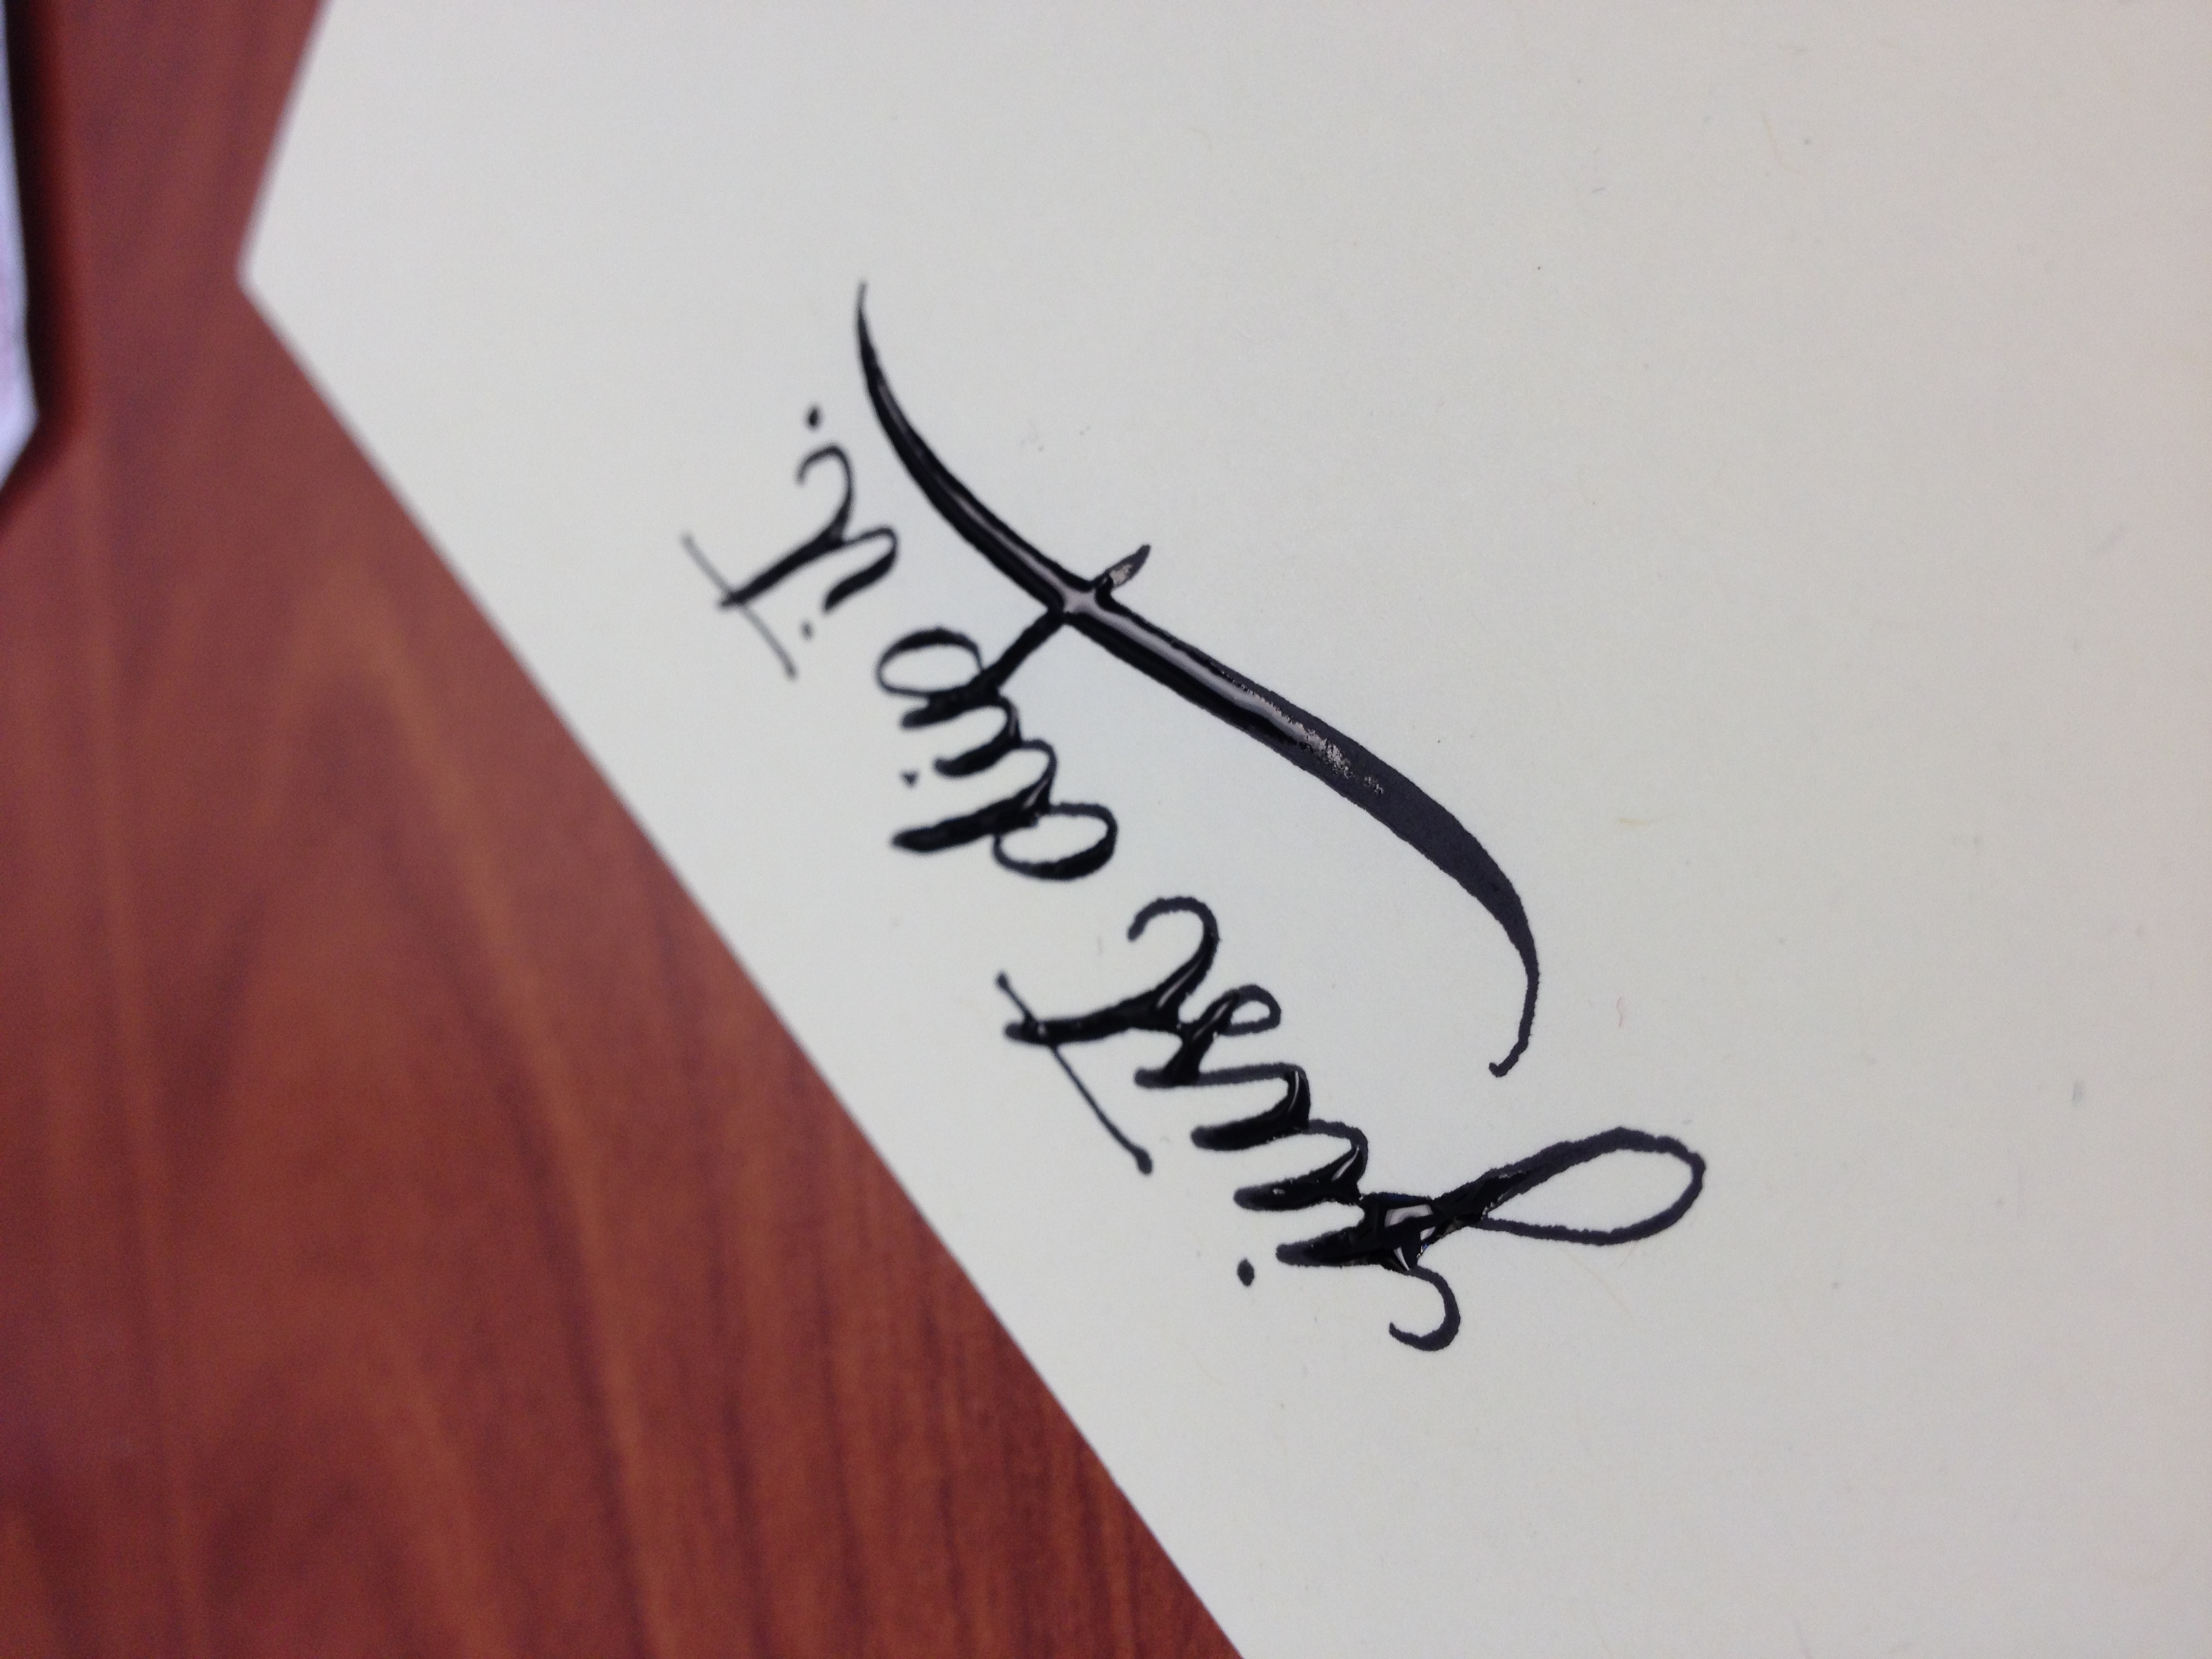 just dip it.